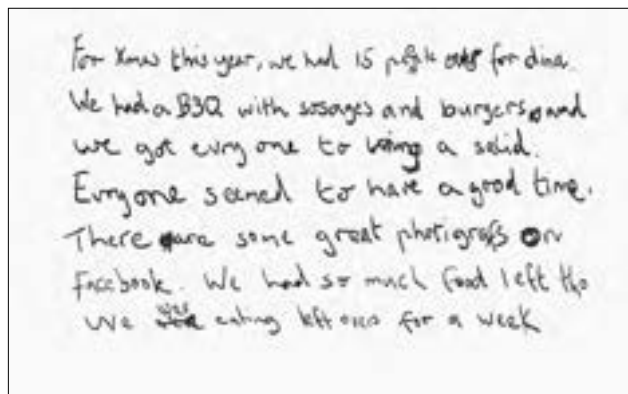 For Xmas this year, we had 15 for dina.
We had a BBQ with sosages and burgers, and
we got evry one to bring a salid.
Evryone seemed to have a good time.
There are some great photigrafs on
Facebook. We had so much food left tho
we were eating left overs for a week